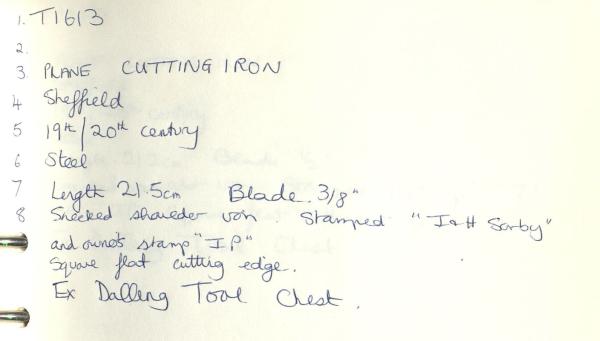 1. T1613
2.
3. PLANE CUTTING IRON
4 Sheffield
5 19th/20th century
6 Steel
7 Length 21.5cm Blade. 3/8"
8 Snecked iron Stamped "I & H Sorby"
and owner's stamp "I P"
Square flat cutting edge.
Ex Dalling Tool Chest.